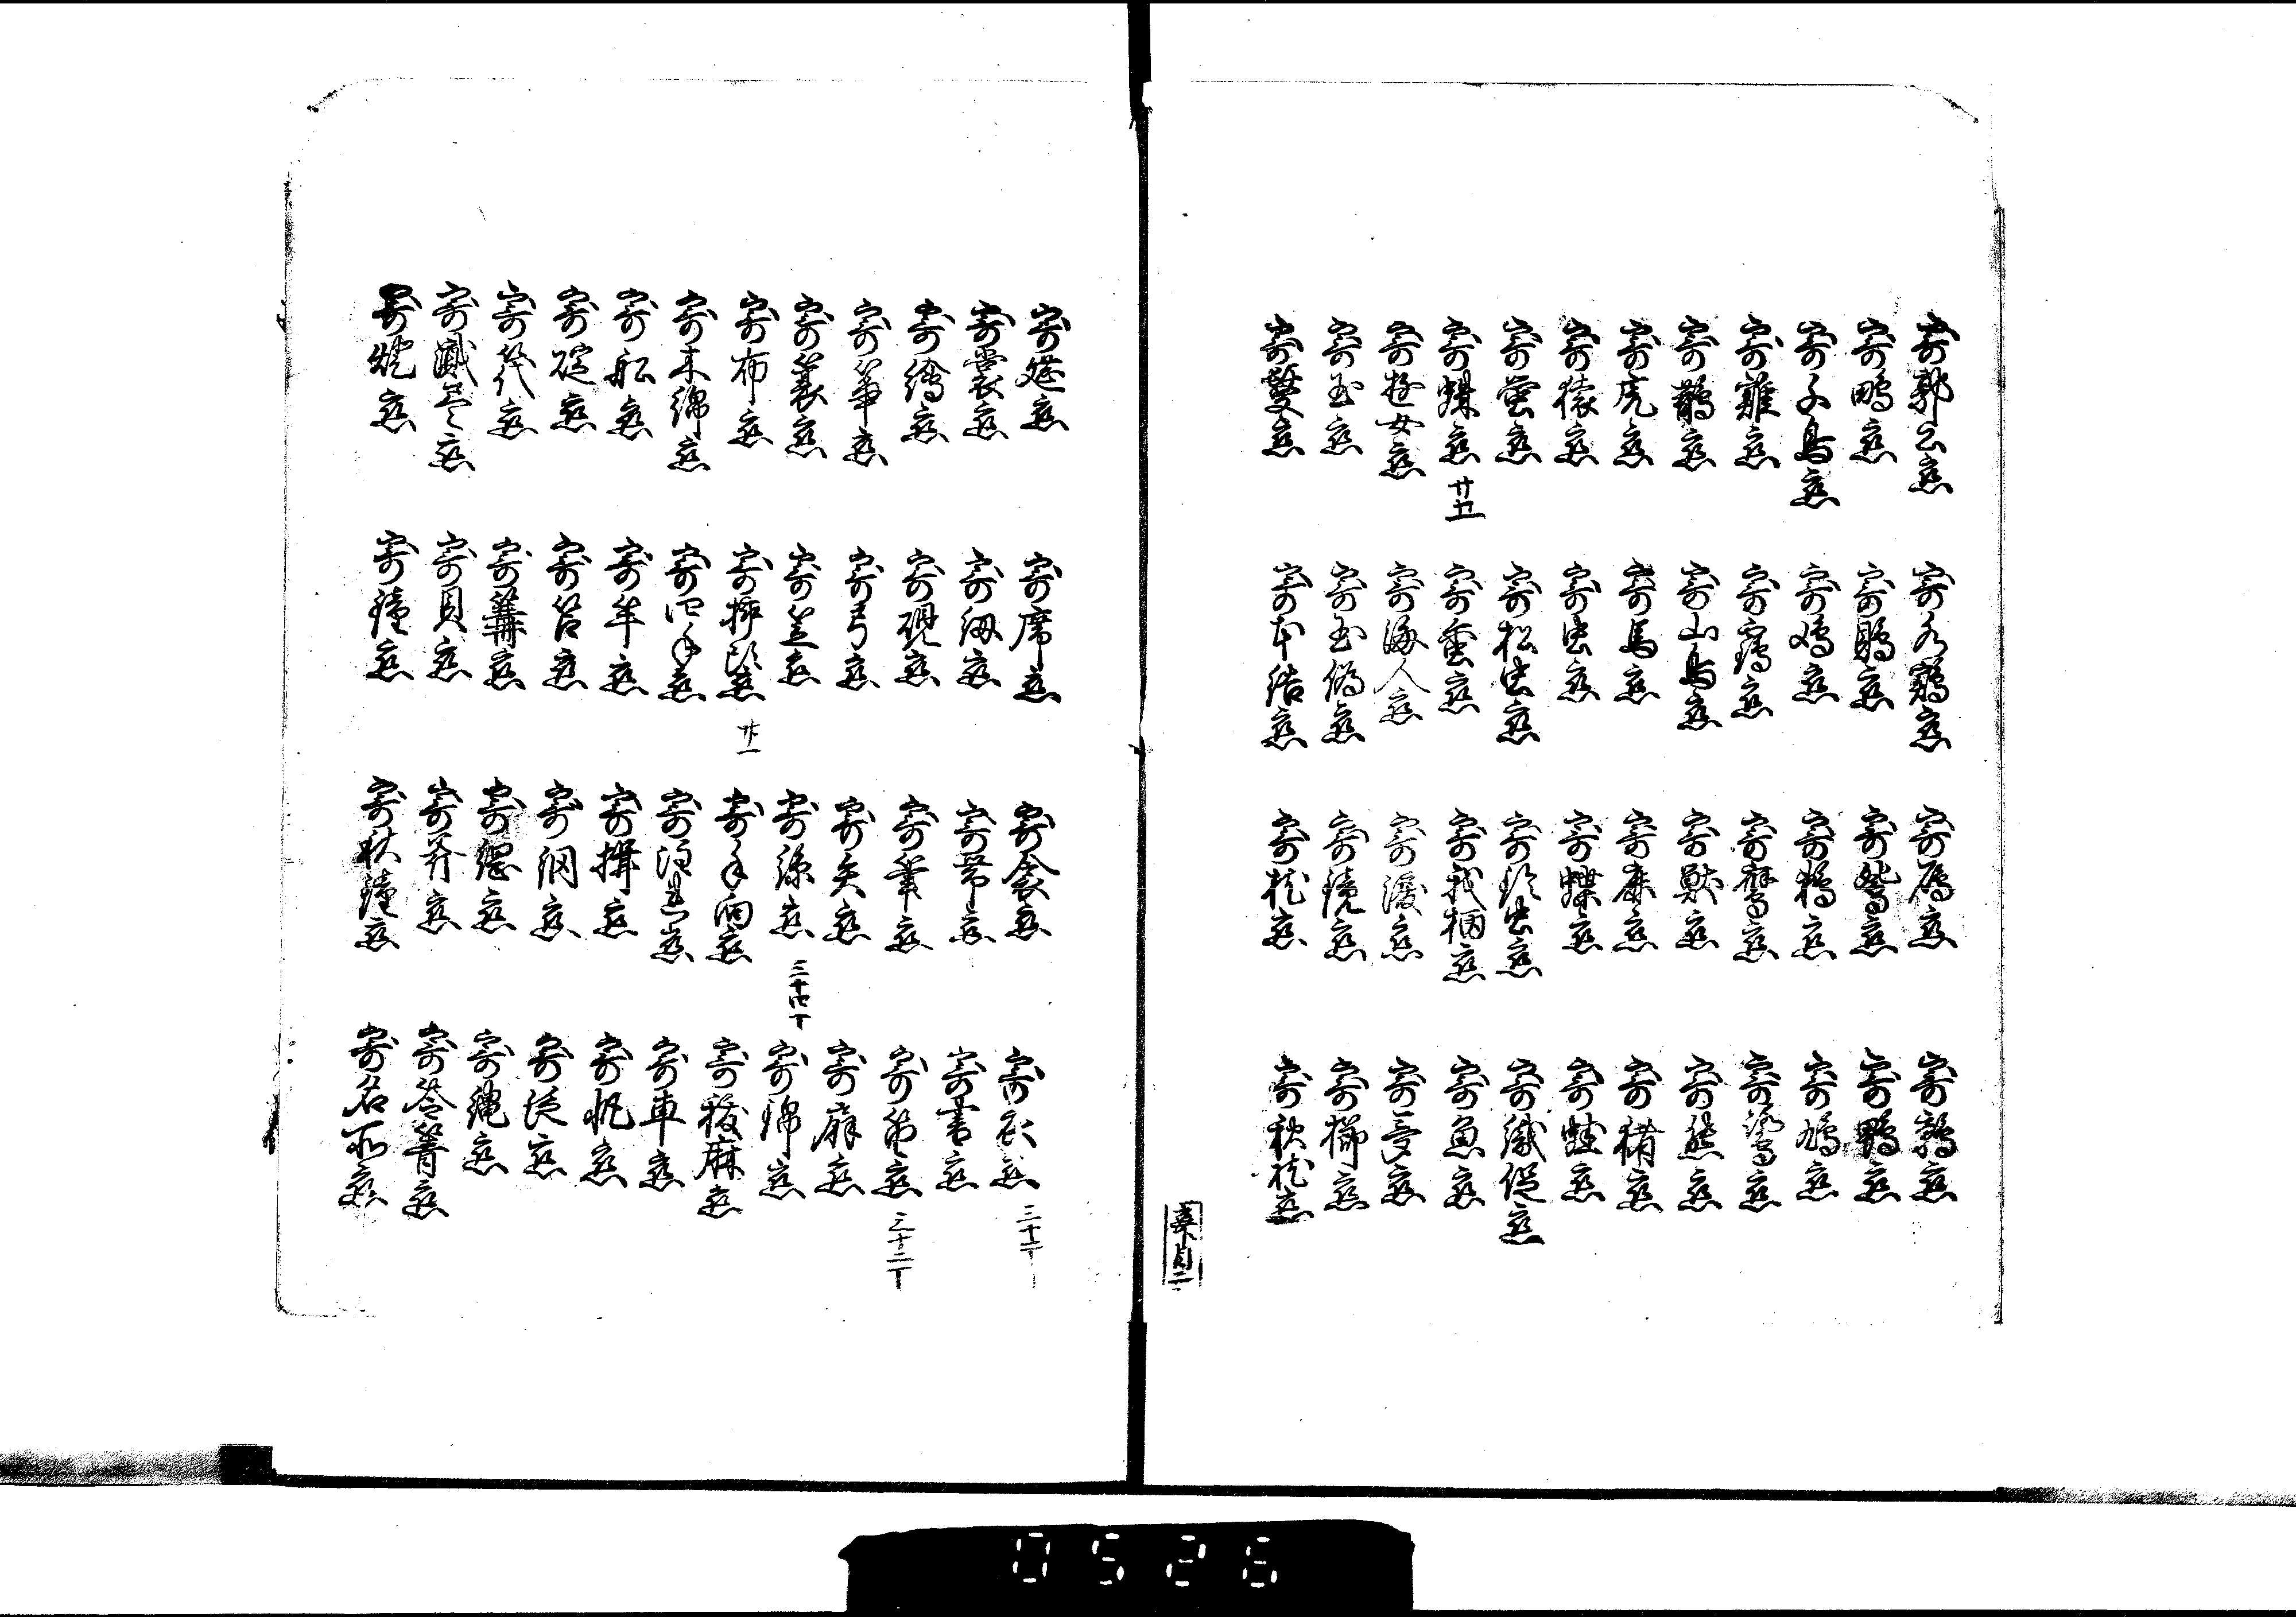 寄郭公恋 寄水鶏恋 寄鴈恋 寄鶉恋
寄鴫恋 寄鵙恋 寄鴛恋 寄鴨恋
寄子鳥恋 寄恋 寄恋 寄鳩恋
寄雞恋 寄鶴恋 寄恋 寄鷺恋
寄鵲恋 寄山鳥恋 寄獣恋 寄熊恋
寄虎恋 寄馬恋 寄鹿恋 寄猪恋
寄猿恋 寄虫恋 寄蝶恋 寄蛙恋
寄蛍恋 寄松虫恋 寄鈴虫恋 寄織促恋
寄蛛恋 廿五 寄蚕恋 寄我柄恋 寄魚恋
寄遊女恋 寄海人恋 寄涙恋 寄夢恋
寄玉恋 寄玉恋 寄鏡恋 寄櫛恋
寄鬘恋 寄本結恋 寄枕恋 寄秋枕恋
寄筵恋 寄席恋 寄衾恋 寄衣恋 三十一丁
寄裳恋 寄紐恋 寄帯恋 寄書恋
寄絵恋 寄硯恋 寄筆恋 寄笛恋 三十二丁
寄箏恋 寄弓恋 寄矢恋 寄扇恋
寄簑恋 寄笠恋 寄恋 三十四丁 寄錦恋
寄布恋 寄挿頭恋 寄手向恋 寄祓麻恋
寄木綿恋 寄四手恋 寄恋 寄車恋
寄船恋 寄恋 寄楫恋 寄帆恋
寄碇恋 寄筥恋 寄網恋 寄恋
寄筏恋 寄篝恋 寄恋 寄縄恋
寄恋 寄貝恋 寄恋 寄恋
寄恋 寄鐘恋 寄秋鐘恋 寄名所恋
0526